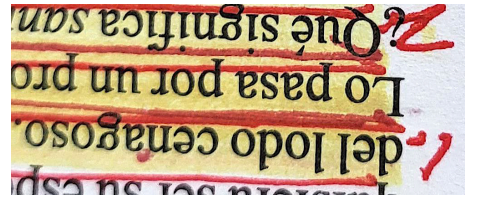 ser su espe
1- del lodo cenagoso.
Lo pasa por un pro
2 ¿Qué significa san